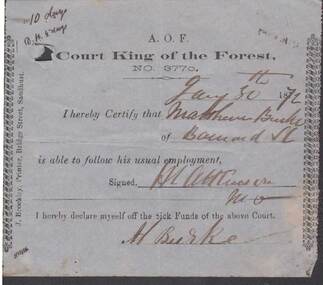 10 days
A. O. F.
Court King of the Forest,
NO. 3770.
Jany 30th 1872
I hereby Certify that Matthew Burke
of Barnard St
is able to follow his usual employment,
Signed, H L Atkinson
M D
I hereby declare myself off the sick Funds of the above Court.
M Burke
J. Brockley, Printer, Bridge Street, Sandhurst.